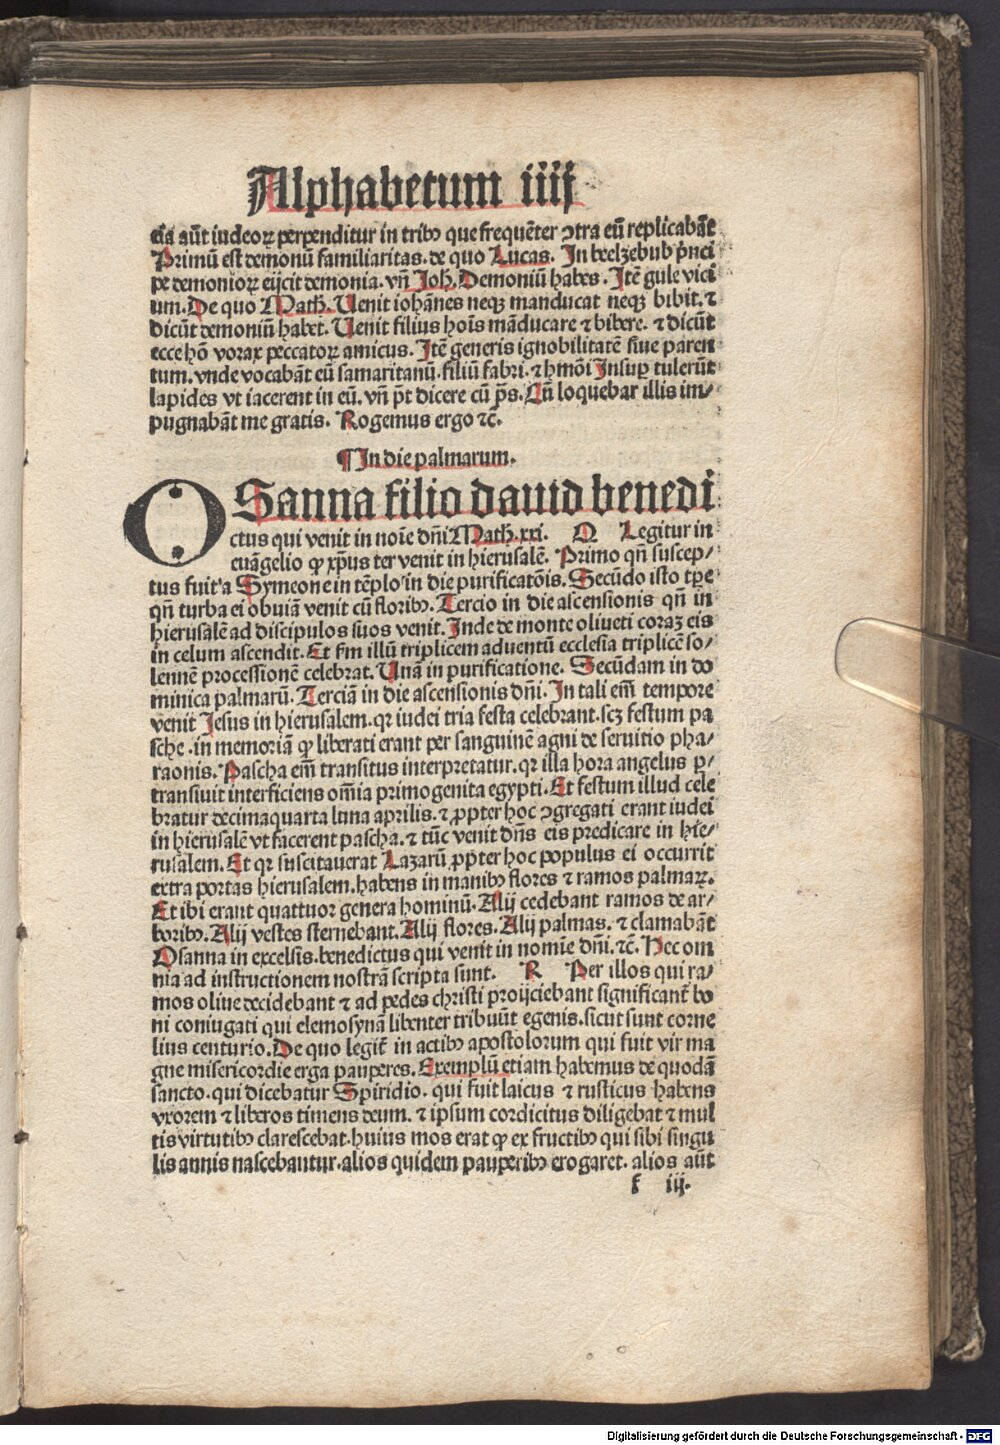 Alphabetum iiij
cia aūt iudeoꝝ perpenditur in tribꝰ que frequēter ꝯtra eū replicabāt
Primū est demonū familiaritas. de quo Lucas. In beelzebub pͥnci
pe demonioꝝ eijcit demonia. vn̄ Joh. Demoniū habes. Itē gule vici
um. De quo Math. Uenit iohānes neqꝫ manducat neqꝫ bibit. ⁊
dicūt demoniū habet. Uenit filius hoīs māducare ⁊ bibere. ⁊ dicūt
ecce hō vorax peccatoꝝ amicus. Itē generis ignobilitatē siue paren
tum. vnde vocabāt eū samaritanū. filiū fabri. ⁊ hmōi Insuꝑ tulerūt
lapides vt iacerent in eū. vn̄ pt̄ dicere cū ps̄. Cū loquebar illis im/
pugnabāt me gratis. Rogemus ergo ⁊c̄.
¶ In die palmarum.
OSanna filio dauid benedi
ctus qui venit in noīe dn̄i Math. xxi. Q Legitur in
euāgelio ꝙ xp̄us ter venit in hierusalē. Primo qn̄ suscep/
tus fuit a Symeone in tēplo in die purificatōis. Secūdo isto tꝑe
qn̄ turba ei obuiā venit cū floribꝰ. Tercio in die ascensionis qn̄ in
hierusalē ad discipulos suos venit. Inde de monte oliueti coraꝫ eis
in celum ascendit. Et s̄m illū triplicem aduentū ecclesia triplicē so/
lennē processionē celebrat. Unā in purificatione. Secūdam in do
minica palmarū. Terciā in die ascensionis dn̄i. In tali em̄ tempore
venit Jesus in hierusalem. qꝛ iudei tria festa celebrant. scꝫ festum pa
sche. in memoriā ꝙ liberati erant per sanguinē agni de seruitio pha/
raonis. Pascha em̄ transitus interpretatur. qꝛ illa hora angelus ꝑ/
transiuit interficiens om̄ia primogenita egypti. Et festum illud cele
bratur decimaquarta luna aprilis. ⁊ ꝓpter hoc ꝯgregati erant iudei
in hierusalē vt facerent pascha. ⁊ tūc venit dn̄s eis predicare in hie/
rusalem. Et qꝛ suscitauerat Lazarū ꝓpter hoc populus ei occurrit
extra portas hierusalem. habens in manibꝰ flores ⁊ ramos palmaꝝ.
Et ibi erant quattuor genera hominū. Alij cedebant ramos de ar/
boribꝰ. Alij vestes sternebant. Alij flores. Alij palmas. ⁊ clamabāt
Osanna in excelsis. benedictus qui venit in nomīe dn̄i. ⁊c̄. Hec om
nia ad instructionem nostrā scripta sunt. R Per illos qui ra/
mos oliue decidebant ⁊ ad pedes christi proijciebant significant̄ bo
ni coniugati qui elemosynā libenter tribuūt egenis. sicut sunt corne
lius centurio. De quo legit̄ in actibꝰ apostolorum qui fuit vir ma
gne misericordie erga pauperes. Exemplū etiam habemus de quodā
sancto. qui dicebatur Spiridio. qui fuit laicus ⁊ rusticus habens
vxorem ⁊ liberos timens deum. ⁊ ipsum cordicitus diligebat ⁊ mul
tis virtutibꝰ clarescebat. huius mos erat ꝙ ex fructibꝰ qui sibi singu
lis annis nascebantur. alios quidem pauperibꝰ erogaret. alios aūt
f iij.
Digitalisierung gefördert durch die Deutsche Forschungsgemeinschaft - DFG